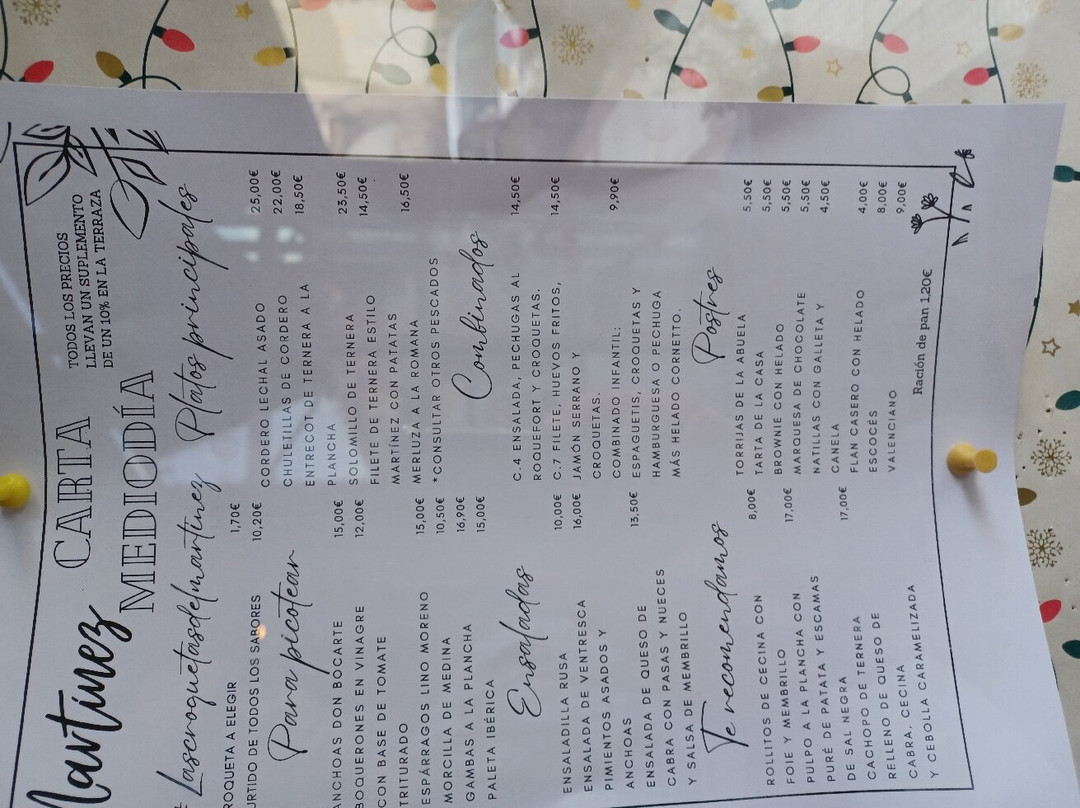 Martinez
CARTA
MEDIODÍA
TODOS LOS PRECIOS
LLEVAN UN SUPLEMENTO
DE UN 10% EN LA TERRAZA
#Lascroquetasdelmartinez
ROQUETA A ELEGIR 1,70€
URTIDO DE TODOS LOS SABORES 10,20€
Para picotear
ANCHOAS DON BOCARTE 15,00€
BOQUERONES EN VINAGRE 12,00€
CON BASE DE TOMATE
TRITURADO
ESPÁRRAGOS LINO MORENO 15,00€
MORCILLA DE MEDINA 10,50€
GAMBAS A LA PLANCHA 16,90€
PALETA IBÉRICA 15,00€
Ensaladas
ENSALADILLA RUSA 10,00€
ENSALADA DE VENTRESCA 16,00€
PIMIENTOS ASADOS Y
ANCHOAS
ENSALADA DE QUESO DE 13,50€
CABRA CON PASAS Y NUECES
Y SALSA DE MEMBRILLO
Te recomendamos
ROLLITOS DE CECINA CON 8,00€
FOIE Y MEMBRILLO
PULPO A LA PLANCHA CON 17,00€
PURÉ DE PATATA Y ESCAMAS
DE SAL NEGRA
CACHOPO DE TERNERA 17,00€
RELLENO DE QUESO DE
CABRA, CECINA
Y CEBOLLA CARAMELIZADA
Platos principales
CORDERO LECHAL ASADO 25,00€
CHULETILLAS DE CORDERO 22,00€
ENTRECOT DE TERNERA A LA 18,50€
PLANCHA
SOLOMILLO DE TERNERA 23,50€
FILETE DE TERNERA ESTILO 14,50€
MARTÍNEZ CON PATATAS
MERLUZA A LA ROMANA 16,50€
*CONSULTAR OTROS PESCADOS
Combinados
C.4 ENSALADA, PECHUGAS AL 14,50€
ROQUEFORT Y CROQUETAS.
C.7 FILETE, HUEVOS FRITOS, 14,50€
JAMÓN SERRANO Y
CROQUETAS.
COMBINADO INFANTIL: 9,90€
ESPAGUETIS, CROQUETAS Y
HAMBURGUESA O PECHUGA
MÁS HELADO CORNETTO.
Postres
TORRIJAS DE LA ABUELA 5,50€
TARTA DE LA CASA 5,50€
BROWNIE CON HELADO 5,50€
MARQUESA DE CHOCOLATE 5,50€
NATILLAS CON GALLETA Y 4,50€
CANELA
FLAN CASERO CON HELADO 4,00€
ESCOCÉS 8,00€
VALENCIANO 9,00€
Ración de pan 1,20€